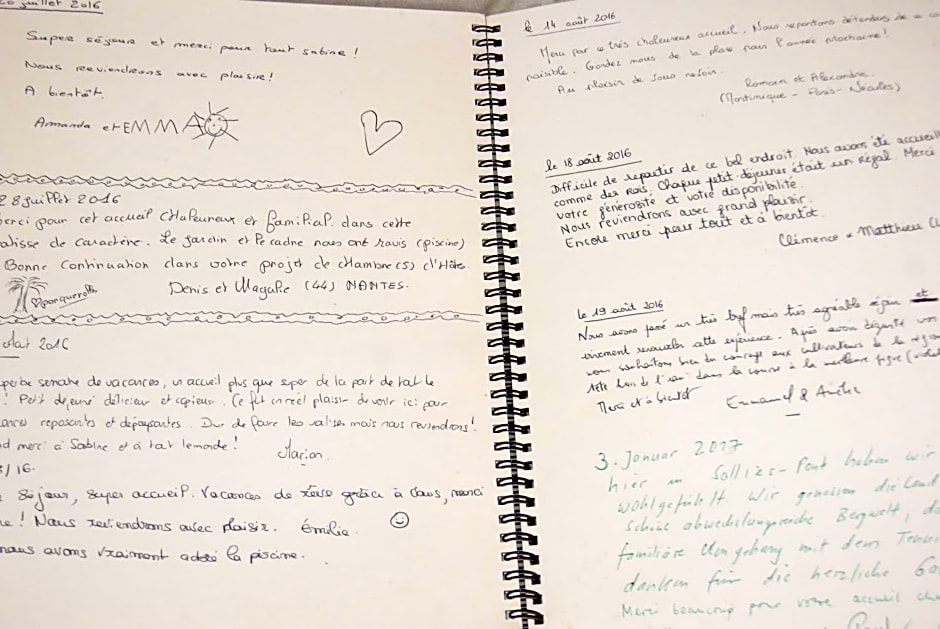 20 juillet 2016
Super séjour et merci pour tout Sabine !
Nous reviendrons avec plaisir !
A bientôt.
Armanda et EMMA
28 juillet 2016
erci pour cet accueil chaleureux et familial dans cette
atisse de caractère. Le jardin et le cadre nous ont ravis (piscine)
Bonne continuation dans votre projet de chambre(s) d'Hôte.
Porquerolle
Denis et Magalie (44) NANTES.
Août 2016
perbe semaine de vacances, un accueil plus que super de la part de tout le
! Petit déjeuné délicieux et copieux. Ce fut un réel plaisir de venir ici pour
ances reposantes et dépaysantes. Dur de faire les valises mais nous reviendrons !
d merci à Sabine et à tout le monde !
Marion.
/16.
Séjour, super accueil. Vacances de rêve grâce à vous, merci
e ! Nous reviendrons avec plaisir. Émilie.
nous avons vraiment adoré la piscine.
le 14 août 2016
Merci par ce très chaleureux accueil. Nous repartons détendus de ce
paisible. Gardez nous de la place pour l'année prochaine !
Au plaisir de vous revoir.
Romain et Alexandra.
(Martinique - Paris - Nantes)
le 18 août 2016
Difficile de repartir de ce bel endroit. Nous avons été accueill
comme des Rois. Chaque petit déjeuner était un régal. Merci
votre générosité et votre disponibilité.
Nous reviendrons avec grand plaisir.
Encore merci pour tout et à bientôt.
Clémence & Matthieu
le 19 août 2016
Nous avons passé un très bref mais très agréable séjour et
vivement renouveler cette expérience. Après avoir dégusté vos
vous souhaitons bien du courage aux cultivateurs de la région
tête hors de l'eau dans la course à la meilleure figue
Merci et à bientôt
Emmanuel & Amélie
3. Januar 2017
hier in Solliès-Pont haben wir
wohlgefühlt. Wir genossen die Land
schöne abwechslungsreiche Bergwelt, d
familiäre Umgebung mit dem Tennis
danken für die herzliche Ga
Merci beaucoup pour votre accueil cha
Paul